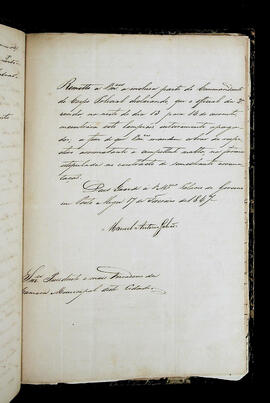 Remetto a V.mces a inclusa parte do Commandante
do Corpo Policial declarando que o official da
ronda na noite do dia 15 para 16 do corrente,
encontrára seis lampiões inteiramente apaga-
dos, a fim de que V.mces mandem
a competente multa, na forma
estipulada no contracto de semelhante arrema-
tação.
Deos Guarde a V.mces Palacio do Governo
em Porto Alegre 17 de Fevereiro de 1847.
Manoel Antonio Galvão
Snr.es Presidente e mais Vereadores da
Camara Municipal desta Cidade.